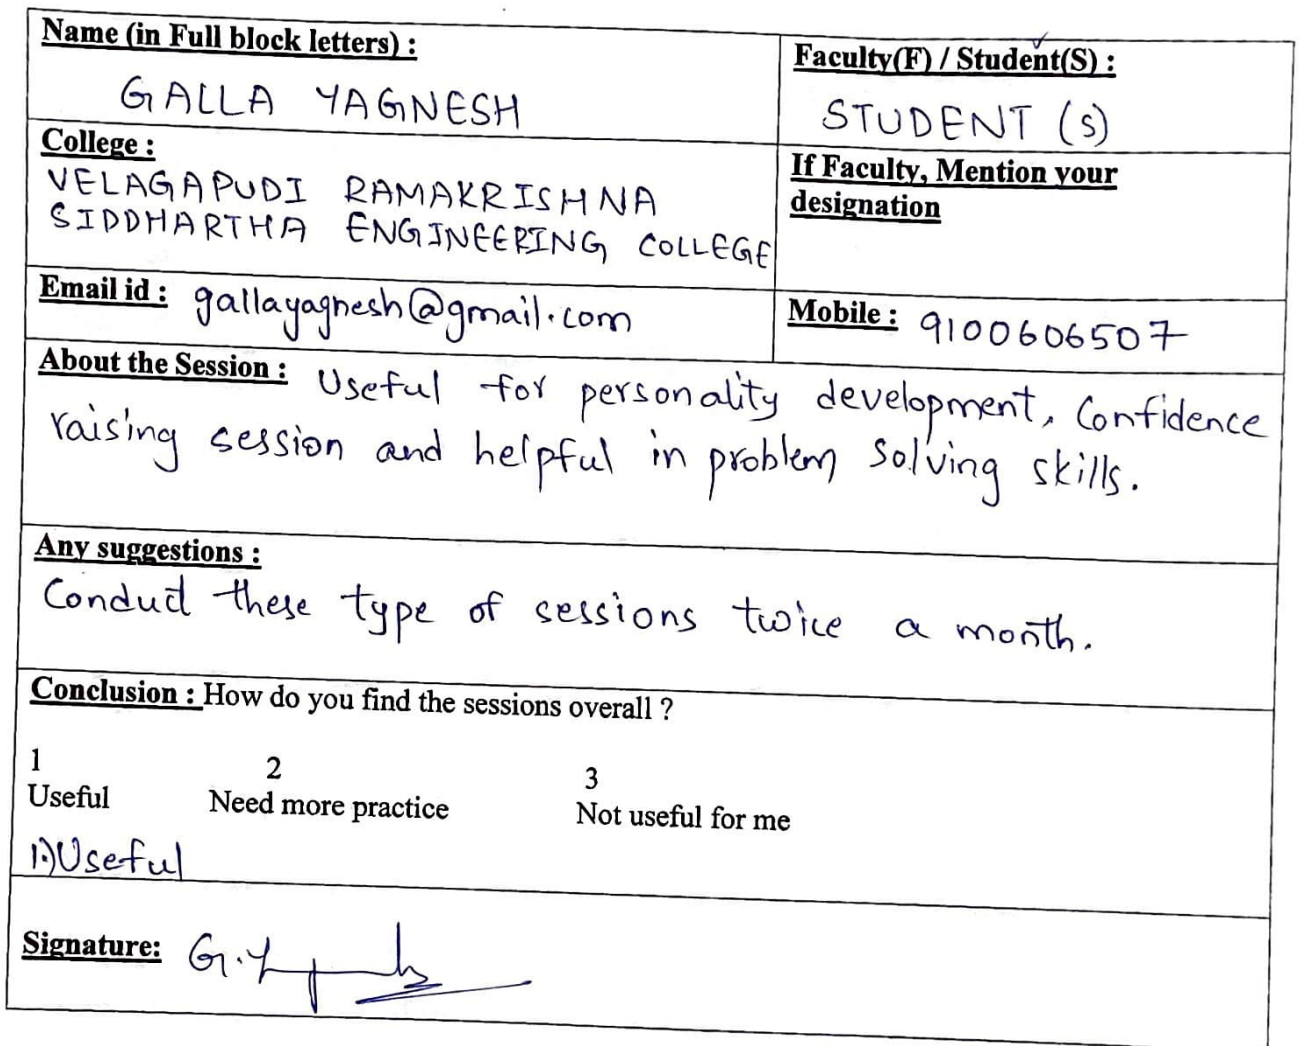 Name (in Full block letters) :
GALLA YAGNESH
Faculty(F) / Student(S) :
STUDENT (S)
College :
VELAGAPUDI RAMAKRISHNA
SIDDHARTHA ENGINEERING COLLEGE
If Faculty, Mention your
designation
Email id : gallayagnesh@gmail.com
Mobile : 9100606507
About the Session : Useful for personality development, Confidence
raising session and helpful in problem solving skills.
Any suggestions :
Conduct these type of sessions twice a month.
Conclusion : How do you find the sessions overall ?
1 2 3
Useful Need more practice Not useful for me
1) Useful
Signature: G.Y